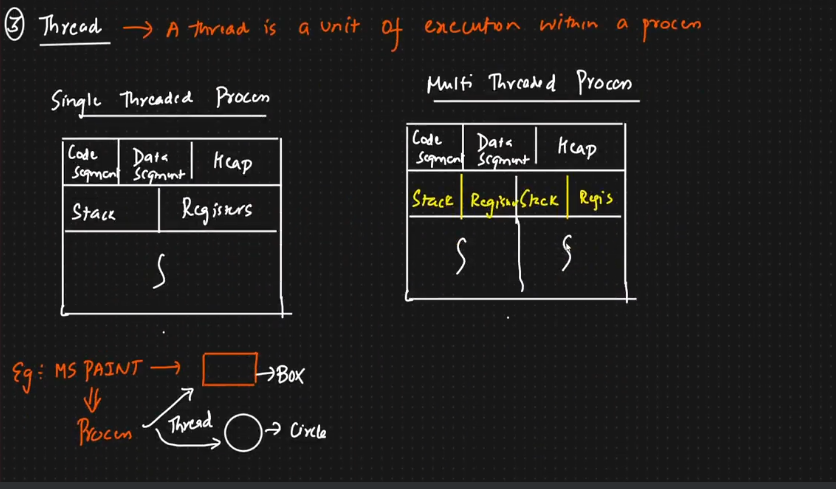 ③ Thread → A thread is a unit of execution within a process
Single Threaded Process
Code Segment Data Segment Heap
Stack Registers
Multi Threaded Process
Code Segment Data Segment Heap
Stack Register Stack Regis
Eg: MS PAINT → → Box
Process Thread → Circle